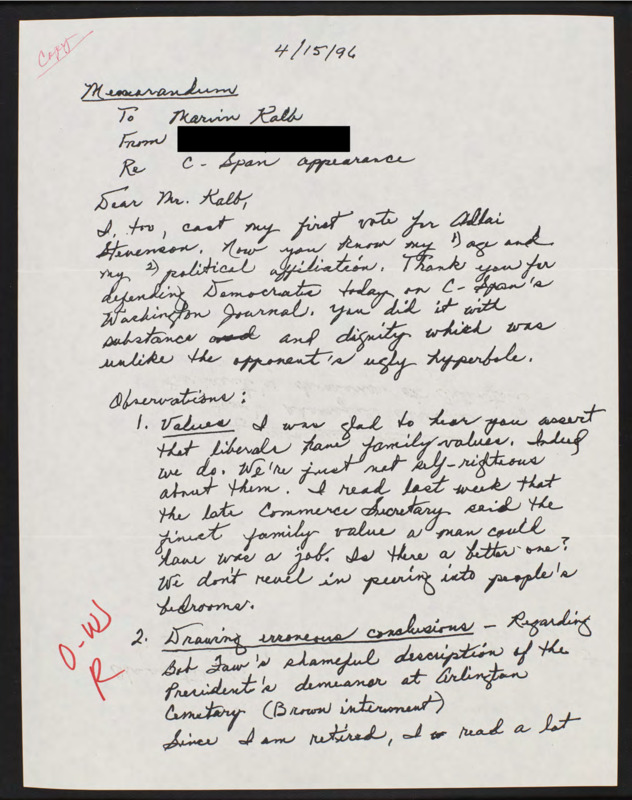 Copy
4/15/96
Memorandum
To Marvin Kalb
From
Re C-Span appearance
Dear Mr. Kalb,
I, too, cast my first vote for Adlai
Stevenson. Now you know my 1) age and
my 2) political affiliation. Thank you for
defending Democrats today on C-Span's
Washington Journal. You did it with
substance and and dignity which was
unlike the opponent's ugly hyperbole.
Observations:
1. Values I was glad to hear you assert
that liberals have family values. Indeed
we do. We're just not self-righteous
about them. I read last week that
the late Commerce Secretary said the
finest family value a man could
have was a job. Is there a better one?
We don't revel in peering into people's
bedrooms.
O-W
R
2. Drawing erroneous conclusions - Regarding
Bob Faw's shameful description of the
President's demeanor at Arlington
Cemetary (Brown interment)
Since I am retired, I read a lot